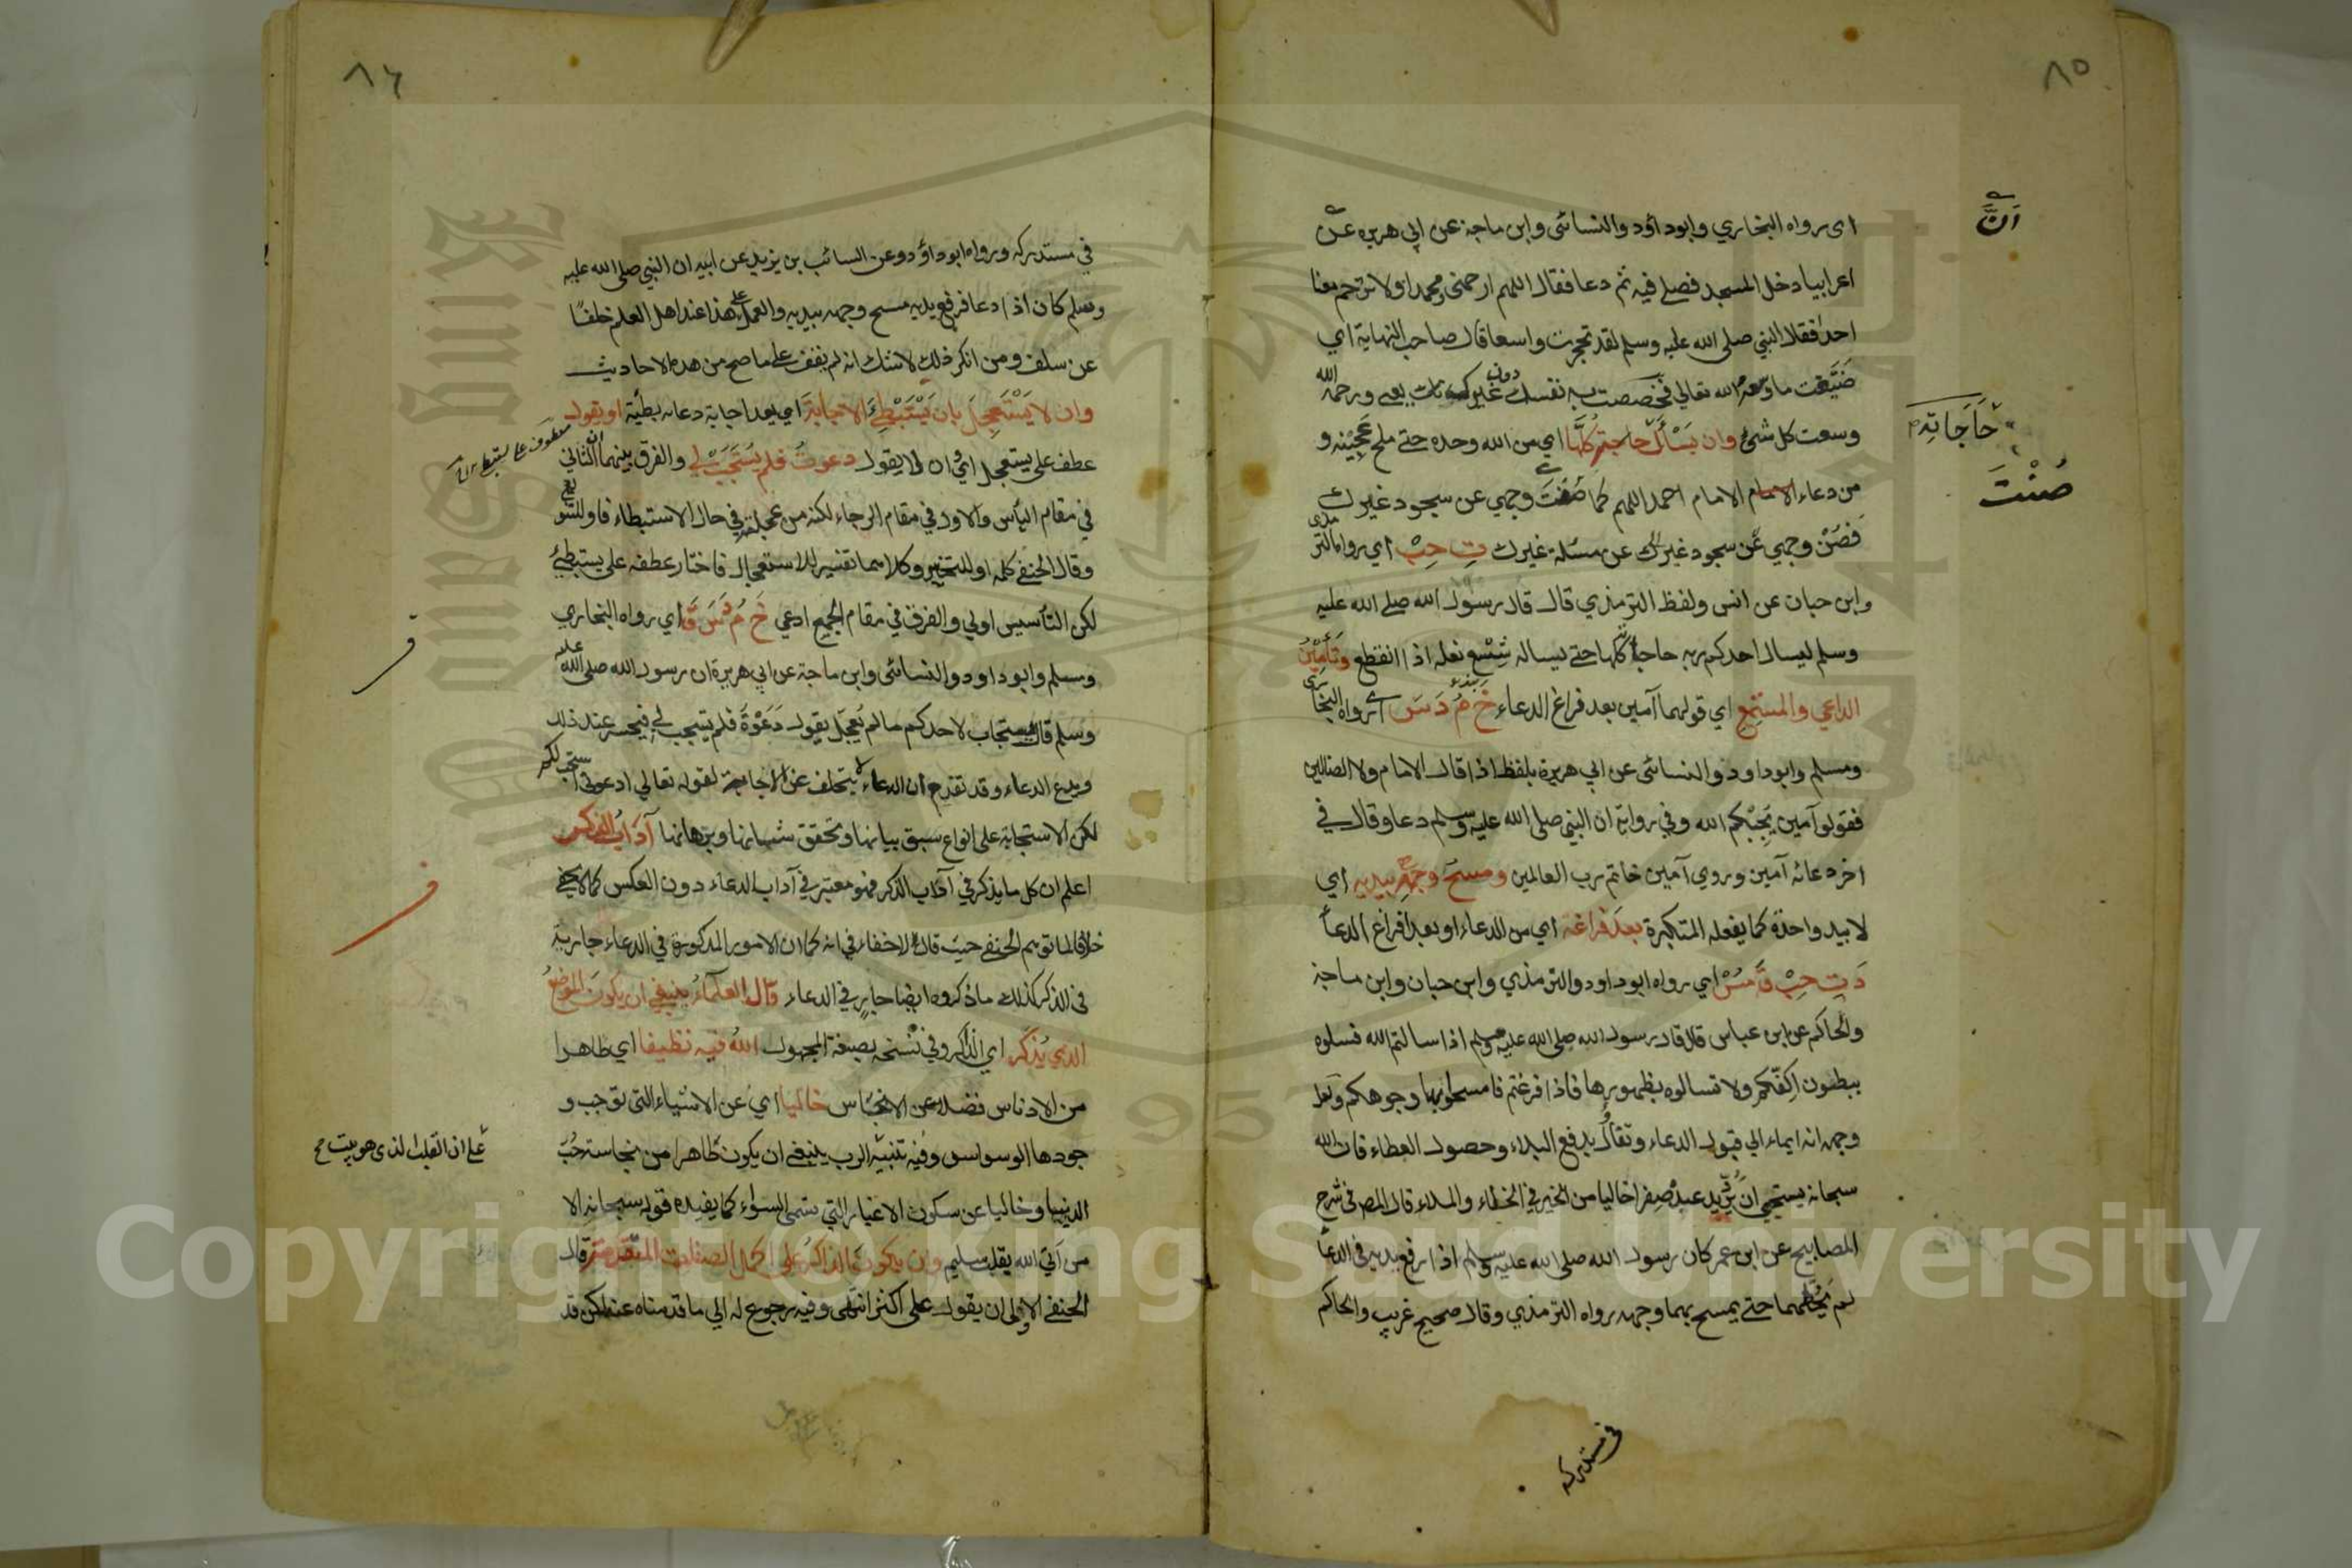 ٨٥
اى رواه البخاري وابوداؤد والنسائى وابن ماجة عن ابي هريرة عن
اَنَّ
اعرابيا دخل المسجد فصلے فيه ثم دعا فقال اللهم ارحمنى ومحمدا ولا ترحم معنا
احدا فقال النبي صلى الله عليه وسلم لقد تحجرت واسعا قال صاحب النهاية اي
ضَيَّقت ما وسعه الله تعالي فخصصت به نفسك دون غيرك ورحمة الله
وسعت كل شئ وان يَسْأَل حاجته كُلَّها اي من الله وحده حتے ملح عَجِيْنِه و
حَاجَاتِه
من دعاء الامام الامام احمد اللهم كما صُنْتَ وجهي عن سجود غيرك
صُنْتَ
فَصُنْ وجهي عن سجود غيرك عن مسئلة غيرك تِ حِبْ اي رواه الترمذى
وابن حبان عن انس ولفظ الترمذي قال قال رسول الله صلے الله عليه
وسلم ليسال احدكم ربه حاجاته كلها حتے يساله شِسْع نعله اذا انقطع وَتَأمِيْنُ
الداعي والمستمع اي قولهما آمين بعد فراغ الدعاء خَ مُ دَ سَ اے رواه البخارى
ومسلم وابوداود والنسائى عن ابي هريرة بلفظ اذا قال الامام ولا الضالين
فقولوا آمين يُجِبْكم الله وفي رواية ان النبي صلى الله عليه وسلم دعا وقال في
اخر دعائه آمين وروي آمين خاتم رب العالمين ومسحَ وجهِهِ بيديه اي
لا بيد واحدة كما يفعله المتكبرة بعدَ فراغه اي من الدعاء او بعد فراغ الدعاء
دَ تِ حِبْ قَ مُسْ اي رواه ابوداود والترمذي وابن حبان وابن ماجة
والحاكم عن ابن عباس قال قال رسول الله صلى الله عليه وسلم اذا سالتم الله فسلوه
ببطون اكفكم ولا تسالوه بظهورها فاذا فرغتم فامسحوا بها وجوهكم ولعل
وجهه انه ايماء الي قبول الدعاء وتفاؤل بدفع البلاء وحصول العطاء فان الله
سبحانه يستحيي ان يرد يد عبد صِفرا خاليا من الخير في الخلاء والملاء قال المص فى شرح
المصابيح عن ابن عمر كان رسول الله صلى الله عليه وسلم اذا رفع يديه فى الدعاء
لم يَحُطَّهما حتے يمسح بهما وجهه رواه الترمذي وقال صحيح غريب والحاكم
فى مستدركه
٨٦
في مستدركه ورواه ابوداؤد وعن السائب بن يزيد عن ابيه ان النبي صلى الله عليه
وسلم كان اذا دعا فرفع يديه مسح وجهه بيديه والعمل على هذا عند اهل العلم خلفًا
عن سلف ومن انكر ذلك لا شك انه لم يقف علے ما صح من هذه الاحاديث
وان لا يَسْتَعجِلَ بان يَسْتَبْطِئَ الاجابة اي يعد اجابة دعائه بطيئة او يقول
عطف على يستعجل اي ان لا يقول دعوتُ فلم يُسْتَجَبْ لي والفرق بينهما ان الثاني
في مقام اليأس والاول في مقام الرجاء لكنه من عجلته في حال الاستبطاء فاو للتنويع
وقال الحنفے كلمة او للتخيير وكلاهما تفسير للاستعجال فاختار عطفه على يستبطئ
لكن التأسيس اولي والفرق في مقام الجمع ادعي خَ مُ دَ سَ قَ اي رواه البخاري
ومسلم وابوداود والنسائى وابن ماجة عن ابي هريرة ان رسول الله صلى الله عليه
وسلم قال يستجاب لاحدكم ما لم يُعجِّل يقول دَعَوْةَ فلم يستجب لي فيتحسر عند ذلك
ويدع الدعاء وقد تقدم ان الدعاء لا يتخلف عن الاجابة لقوله تعالي ادعونى استجب لكم
لكن الاستجابة على انواع سبق بيانها وتحقق شانها وبرهانها آدَابُ الذِكر
اعلم ان كل ما يذكر في آداب الذكر فهو معتبر في آداب الدعاء دون العكس كما لا يخفے
خلافا لما توهم الحنفے حيث قال لا خفاء في انه كما ان الامور المذكورة في الدعاء جارية
فى الذكر كذلك ما ذكروه ايضا جارٍ في الدعاء قال العلماءُ ينبغي ان يكونَ الموضعُ
الذي يُذكَر اي الذاكر وفي نسخة بصيغة المجهول اللهُ فيه نظيفا اي طاهرا
من الادناس فضلا عن الانجاس خاليا اي عن الاشياء التي توجب و
جودها الوسواس وفيه تنبيه ينبغے ان يكون طاهرا من نجاسة حُبّ
علے ان القلب الذى هو بيت
الدنيا وخاليا عن سكون الاغيار التي تسمى السواء كما يفيده قوله سبحانه الا
من اتي الله بقلب سليم وان يكونَ الذاكرُ على اكمل الصفات المتقدمة قال
الحنفے الاولى ان يقول على اكثر انتهى وفيه رجوع له الي ما قدمناه عنه لكن قد
Copyright © King Saud University
1957